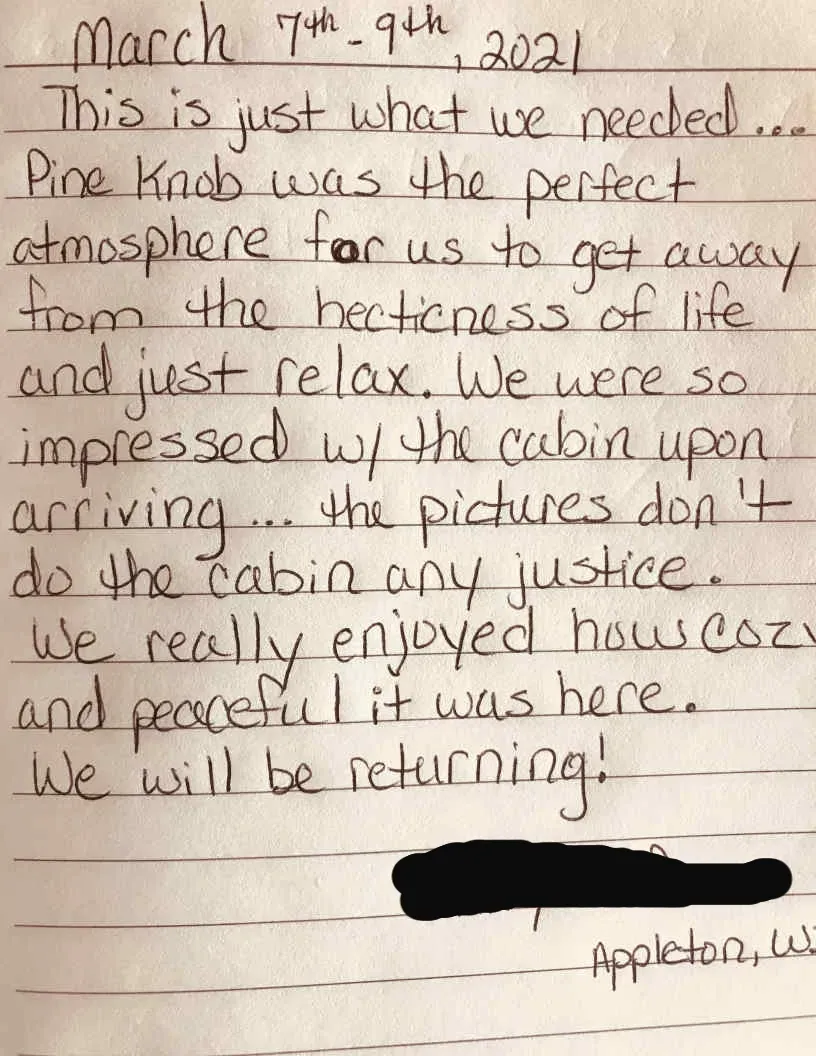 March 7th-9th, 2021
This is just what we needed...
Pine Knob was the perfect
atmosphere for us to get away
from the hecticness of life
and just relax. We were so
impressed w/ the cabin upon
arriving... the pictures don't
do the cabin any justice.
We really enjoyed how cozy
and peaceful it was here.
We will be returning!
Appleton, Wi